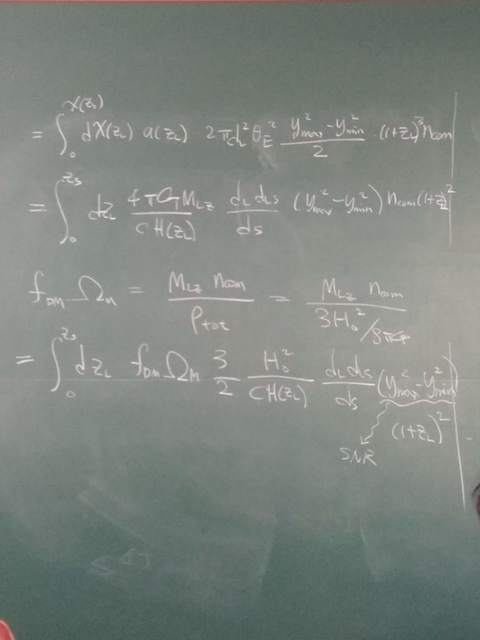 = ∫₀^{χ(z_s)} dχ(z_L) a(z_L) 2π d_L² θ_E² \frac{y_{max}^2 - y_{min}^2}{2} (1+z_L)³ n_com
= ∫₀^{z_s} dz_L \frac{4πG M_{Lz}}{cH(z_L)} \frac{d_L d_{Ls}}{d_s} (y_{max}^2 - y_{min}^2) n_com (1+z_L)²
f_{DM} Ω_M = \frac{M_{Lz} n_{com}}{ρ_{tot}} = \frac{M_{Lz} n_{com}}{3H_0^2 / 8πG}
= ∫₀^{z_s} dz_L f_{DM} Ω_M \frac{3}{2} \frac{H_0^2}{cH(z_L)} \frac{d_L d_{Ls}}{d_s} (y_{max}^2 - y_{min}^2)
(1+z_L)²
SNR